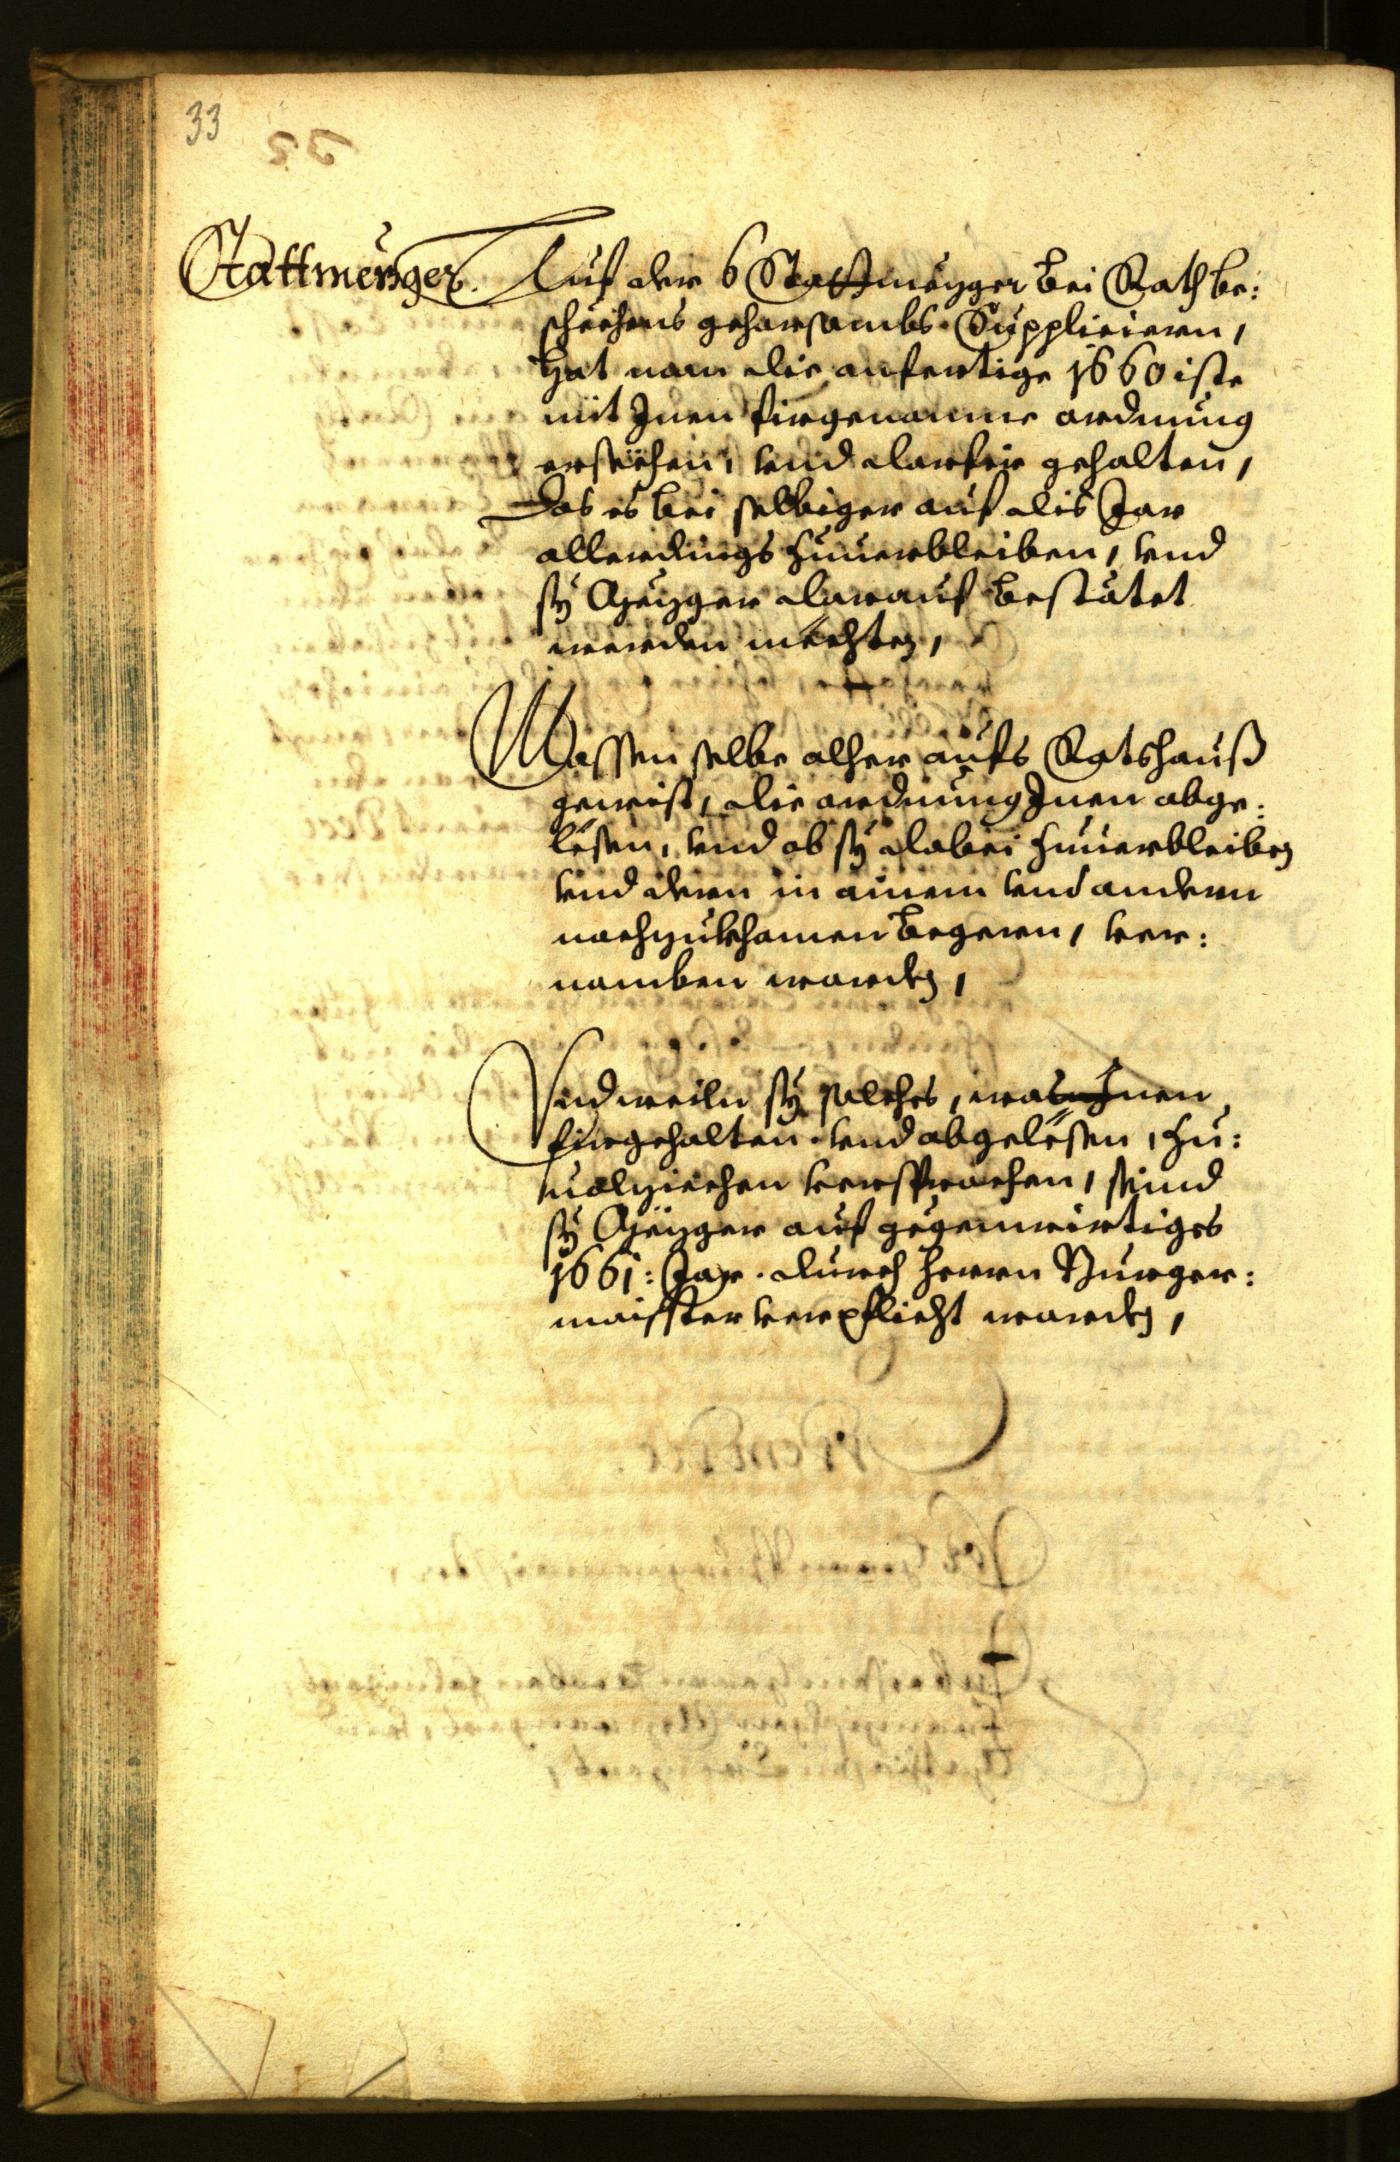 33
Stattmezger.
Auf der 6 Stattmezger bei Rath be:
schechens gehorsambs Suppliciern,
hat man die anfertige 1660iste
mit Inen firgenomne ordnung
ersechen, vnd darfir gehalten,
Das es bei selbiger auf dis Jar
allerdings zuuerbleiben, vnd
sy Mezger darauf bestätet
werden mechten,
Massen selbe alher aufs Ratshauß
geweist, die ordnung Inen abge:
lesen, vnd ob sy dabei zuuerbleiben
vnd deren in ainem vnd andern
nachzukhomen begern, ver:
nomben worden,
Vnd weiln sy solches, was Inen
firgehalten vnd abgelesen, zu:
uolziechen versprochen, seind
sy Mezger auf gegenwirtiges
1661: Jar durch herrn Burger:
maisster verpflicht worden,